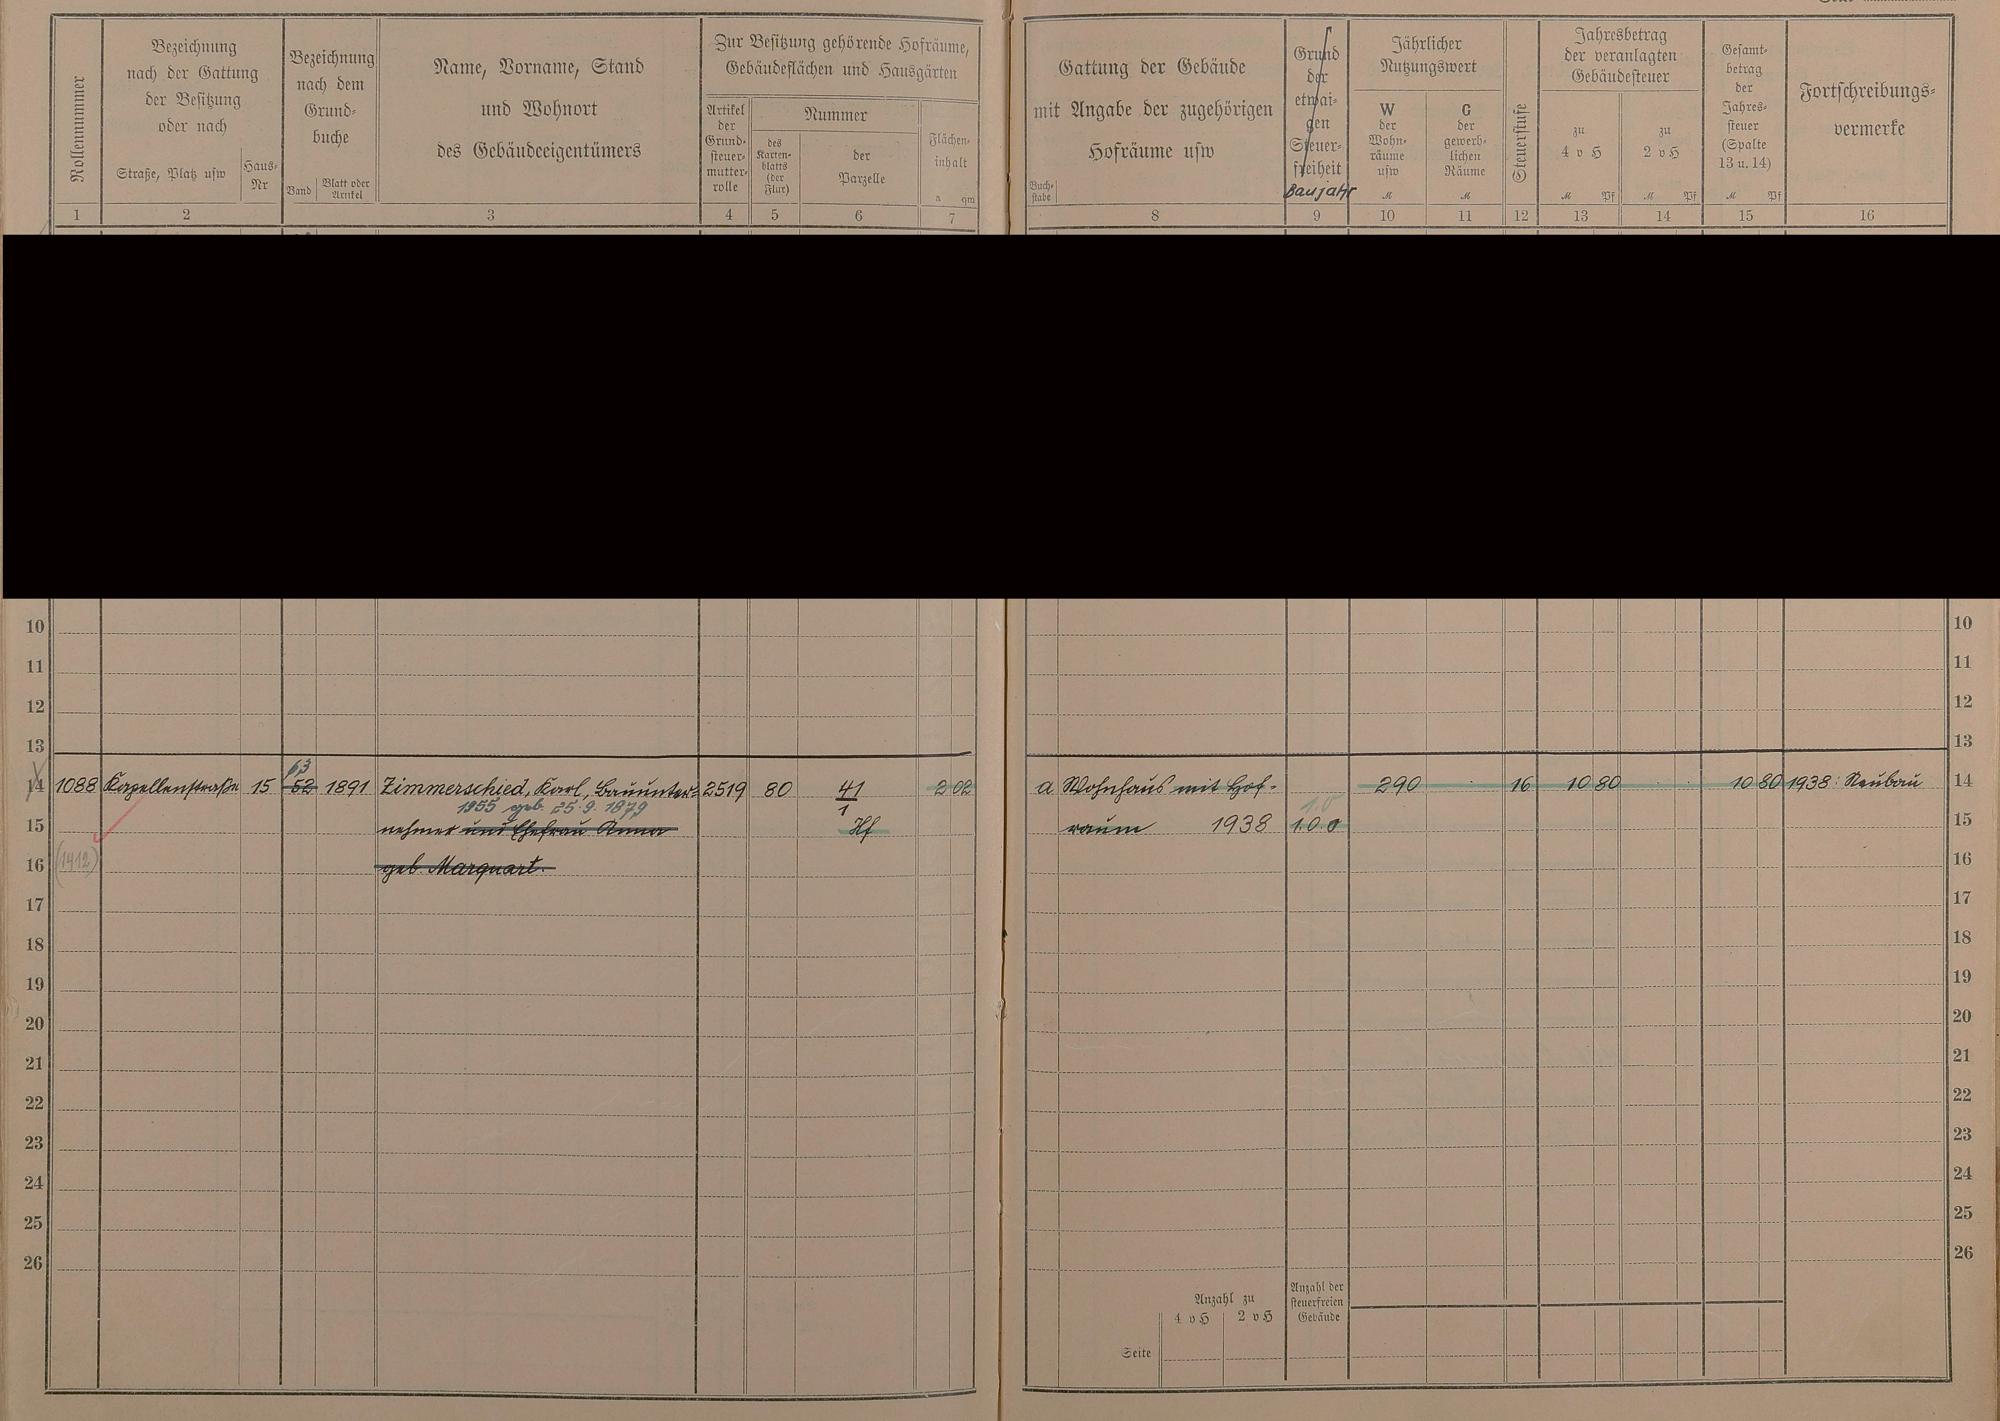 Rollennummer
Bezeichnung
nach der Gattung
der Besitzung
oder nach
Straße, Platz usw
Haus-
Nr
Bezeichnung
nach dem
Grund-
buche
Band
Blatt oder
Artikel
Name, Vorname, Stand
und Wohnort
des Gebäudeeigentümers
Zur Besitzung gehörende Hofräume,
Gebäudeflächen und Hausgärten
Artikel
der
Grund-
steuer-
mutter-
rolle
Nummer
des
Karten-
blatts
(der
Flur)
der
Parzelle
Flächen-
inhalt
a qm
1 2 3 4 5 6 7
Gattung der Gebäude
mit Angabe der zugehörigen
Hofräume usw
Buch-
stabe
Grund
der
etwai-
gen
Steuer-
freiheit
Baujahr
Jährlicher
Nutzungswert
W
der
Wohn-
räume
usw
M
G
der
gewerb-
lichen
Räume
M
Steuerstufe
Jahresbetrag
der veranlagten
Gebäudesteuer
zu
4 v H
M Pf
zu
2 v H
M Pf
Gesamt-
betrag
der
Jahres-
steuer
(Spalte
13 u. 14)
M Pf
Fortschreibungs-
vermerke
8 9 10 11 12 13 14 15 16
10 10
11 11
12 12
13 13
63
14 1088 Kapellenstraße 15 52 1891 Zimmerschied, Karl, Bauunter- 2519 80 41/1 2 02 a Wohnhaus mit Hof- 290 16 10 80 10 80 1938: Neubau 14
1955 geb. 25.9.1879 1.0
15 nehmer und Ehefrau Anna Hf raum 1938 1.0.0 15
16 (1412) geb. Marquart. 16
17 17
18 18
19 19
20 20
21 21
22 22
23 23
24 24
25 25
26 26
Anzahl zu
4 v H 2 v H
Anzahl der
steuerfreien
Gebäude
Seite